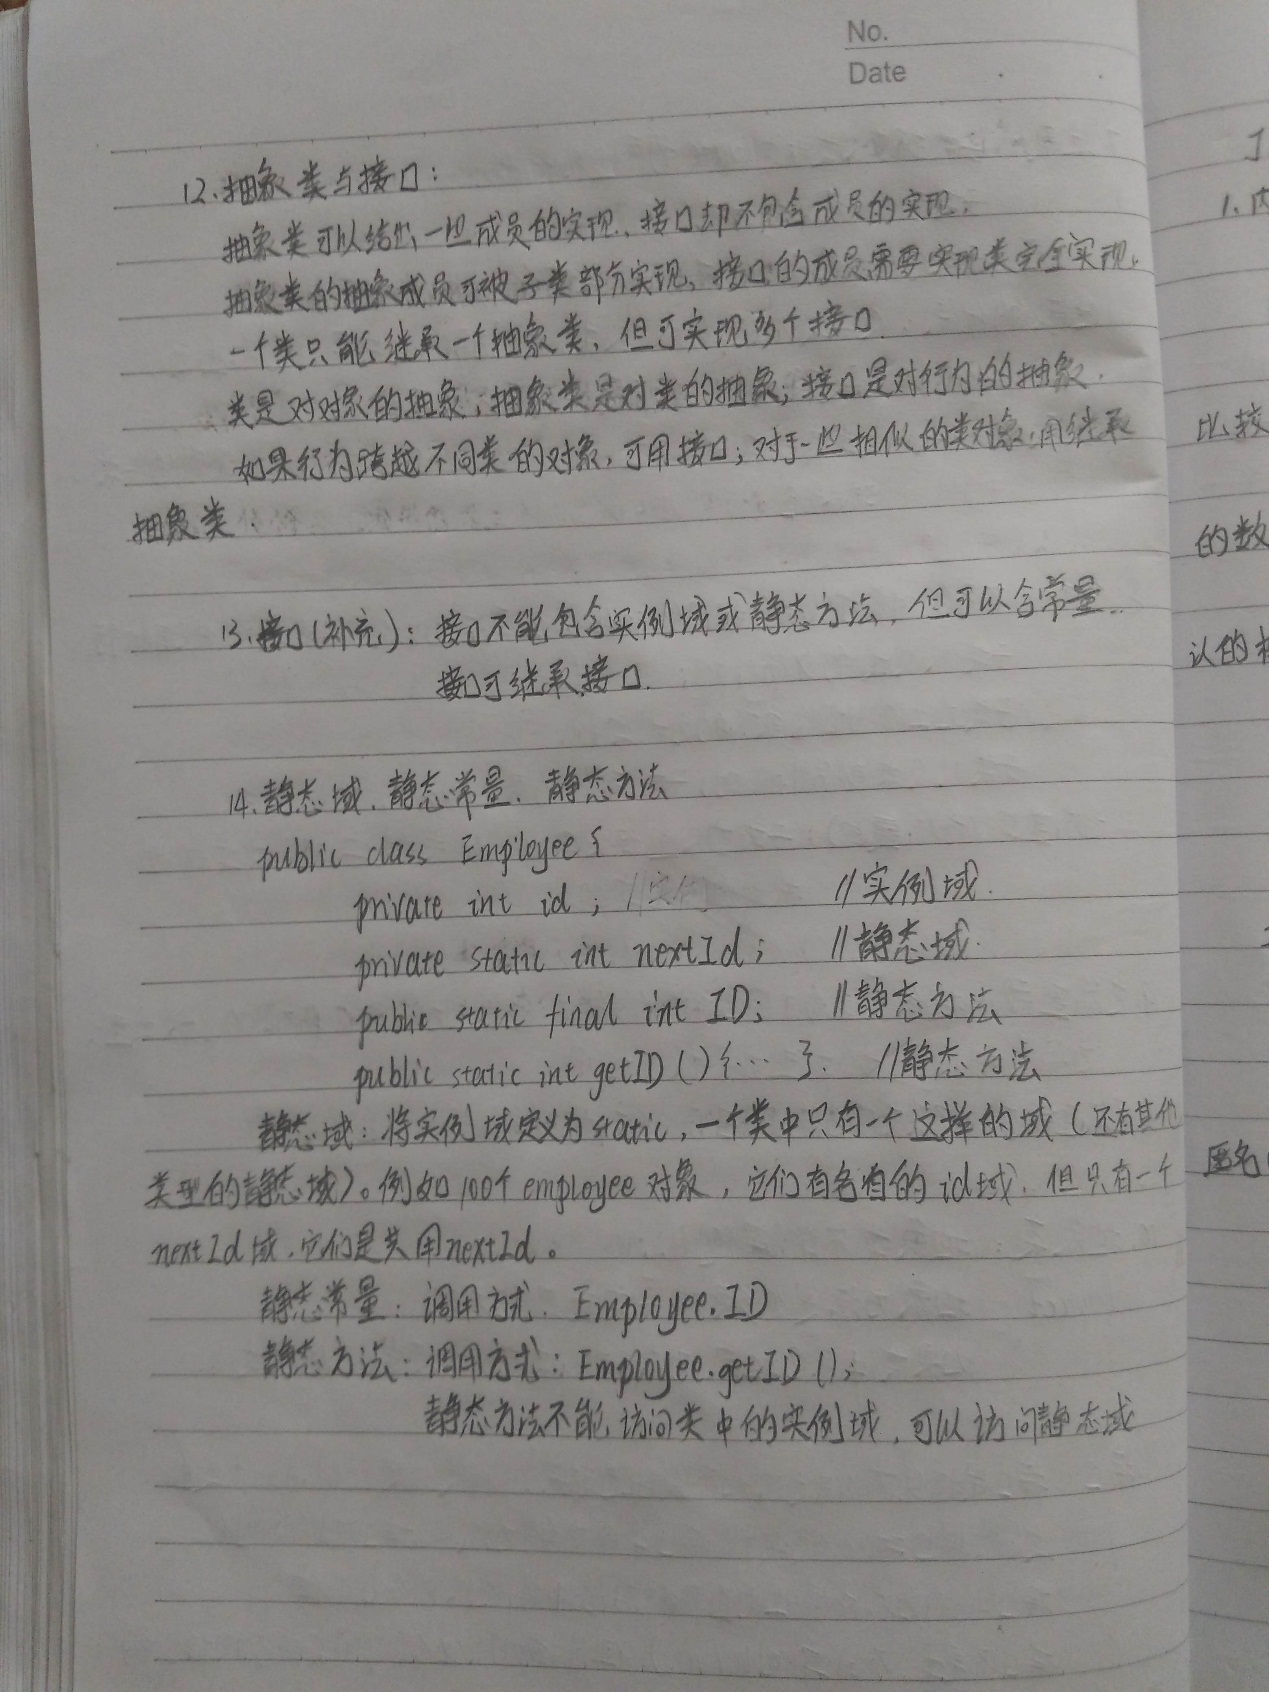 No.
Date
12.抽象类与接口：
抽象类可以给出一些成员的实现、接口却不包含成员的实现.
抽象类的抽象成员可被子类部分实现、接口的成员需要实现类完全实现.
一个类只能继承一个抽象类、但可实现多个接口.
类是对对象的抽象；抽象类是对类的抽象；接口是对行为的抽象.
如果行为跨越不同类的对象，可用接口；对于一些相似的类对象.用继承
抽象类.
13.接口(补充)：接口不能包含实例域或静态方法，但可以含常量..
接口可继承接口.
14.静态域.静态常量.静态方法
public class Employee {
private int id ; //实例 //实例域.
private static int nextId; //静态域.
public static final int ID; //静态方法
public static int getID () {… }. //静态方法
静态域：将实例域定义为static，一个类中只有一个这样的域（还有其他
类型的静态域）。例如100个employee对象，它们有各自的id域.但只有一个
nextId域.它们是共用nextId。
静态常量：调用方式. Employee.ID
静态方法：调用方式：Employee.getID ();
静态方法不能访问类中的实例域，可以访问静态域
1.内
比较
的数
认的
匿名